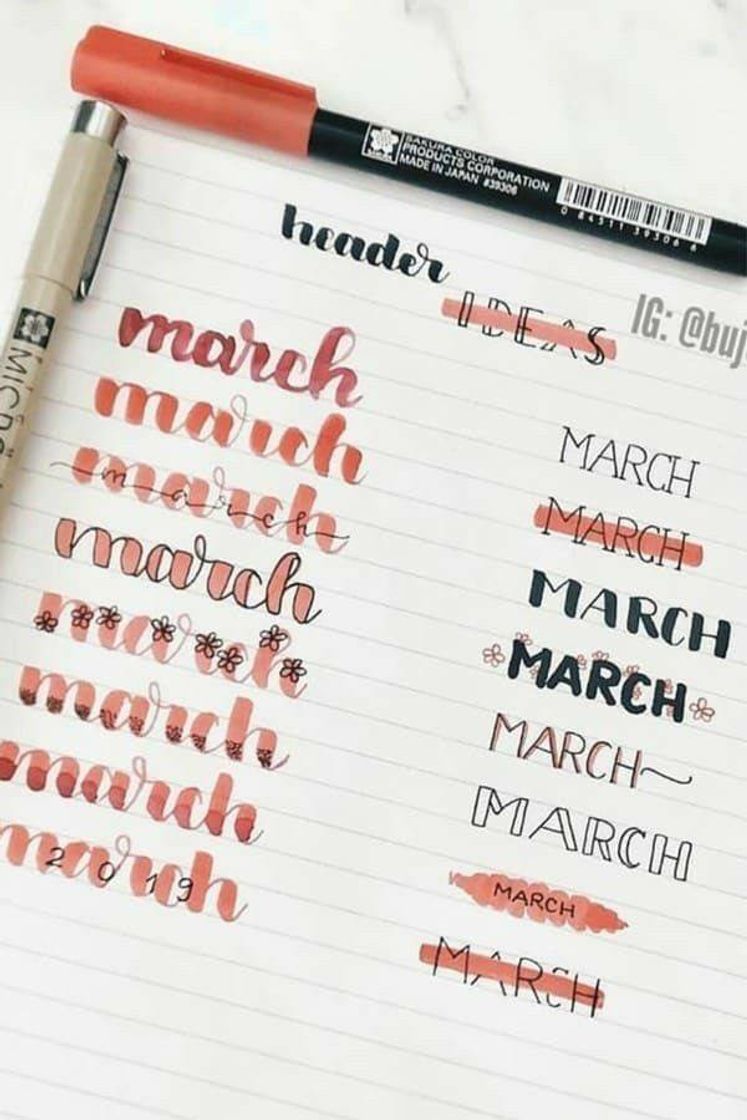 SAKURA COLOR
PRODUCTS CORPORATION
MADE IN JAPAN #39306
0 84511 39306 6
header
IDEAS
IG: @buj
march
march
march
march
march
march
march
march
2019
MARCH
MARCH
MARCH
MARCH
MARCH
MARCH
MARCH
MARCH